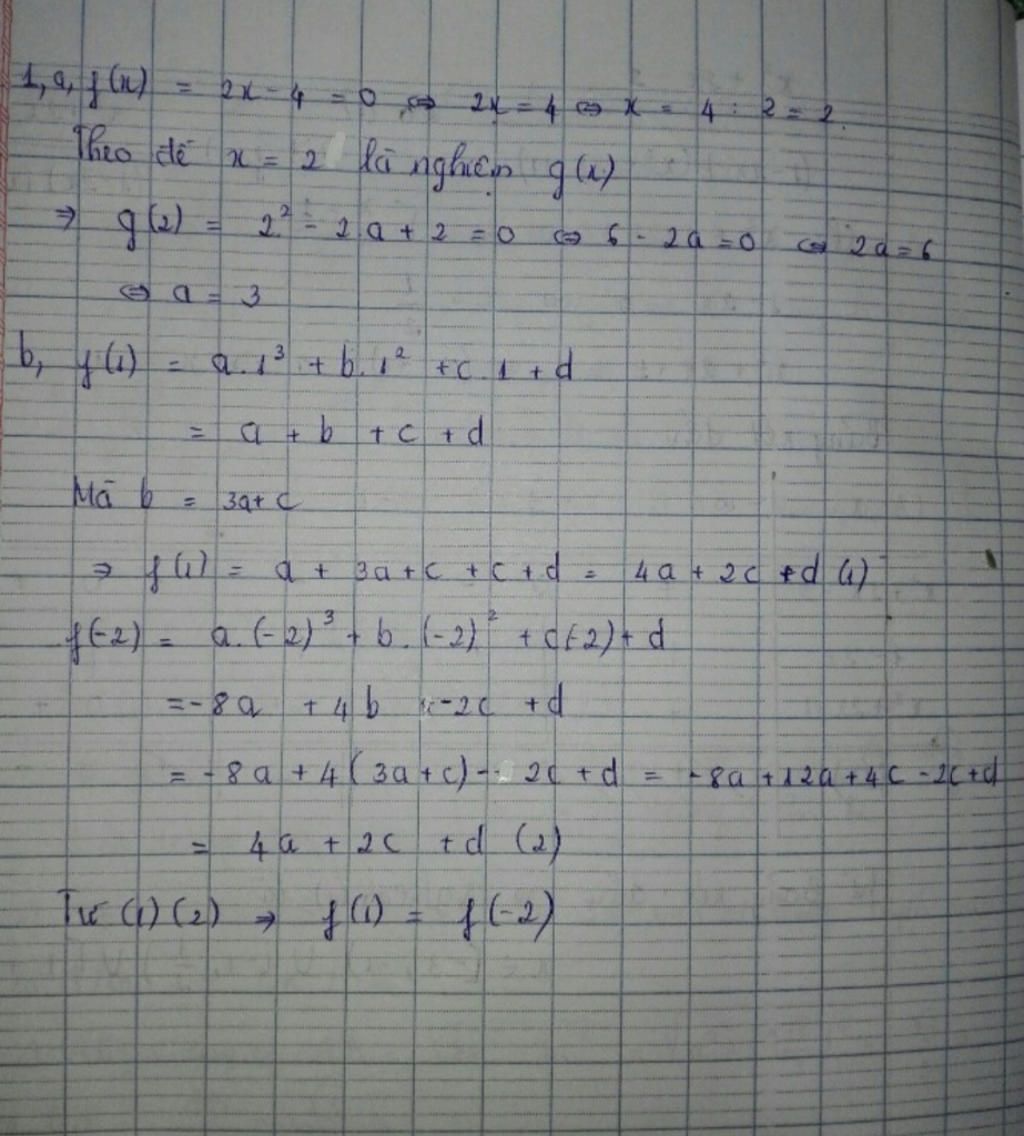 1, a, f(x) = 2x - 4 = 0 ⇔ 2x = 4 ⇔ x = 4 : 2 = 2.
Theo đề x = 2 là nghiệm g(x)
⇒ g(2) = 2² - 2a + 2 = 0 ⇔ 6 - 2a = 0 ⇔ 2a = 6
⇔ a = 3
b, f(1) = a.1³ + b.1² + c.1 + d
= a + b + c + d
Mà b = 3a + c
⇒ f(1) = a + 3a + c + c + d = 4a + 2c + d (1)
f(-2) = a.(-2)³ + b.(-2)² + c(-2) + d
= -8a + 4b - 2c + d
= -8a + 4(3a + c) - 2c + d = -8a + 12a + 4c - 2c + d
= 4a + 2c + d (2)
Từ (1) (2) ⇒ f(1) = f(-2)